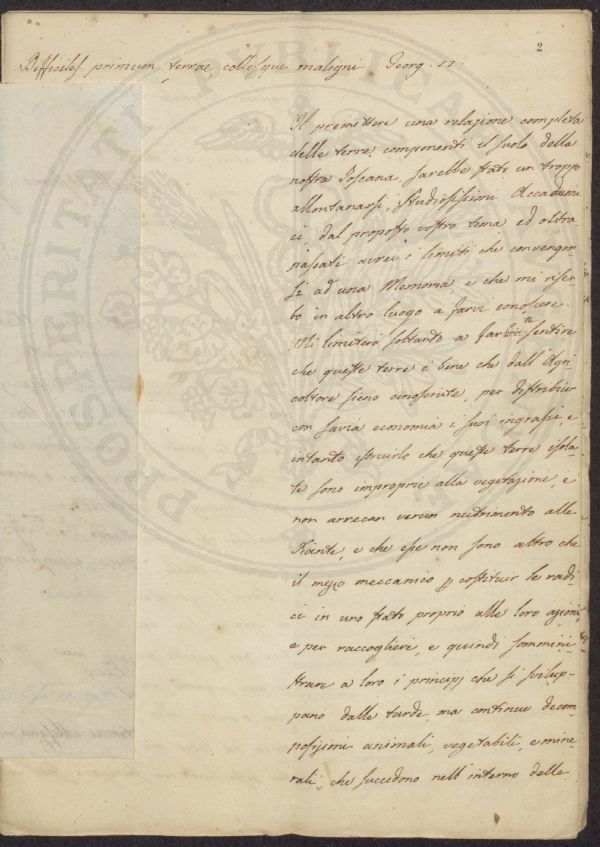 2
Difficiles primum terrae, collesque maligni Georg. II.
Il premettere una relazione completa
delle terre componenti il suolo della
nostra Toscana, sarebbe stato un troppo
allontanarsi, Studiosissimi Accadem
ci, dal proposto vostro tema ed oltre
passati avrei i limiti che convengon
si ad una Memoria e che mi riser
bo in altro luogo a farvi conoscere.
Mi limiterò soltanto a far sentire
che queste terre è bene che dall' Agri
coltore sieno conosciute, per distribuir
con savia economia i suoi ingrassi, e
intanto istruirlo che queste terre isola
te sono improprie alla vegetazione, e
non arrecan verun nutrimento alle
Piante, e che esse non sono altro che
il mezzo meccanico p costituir le radi
ci in uno stato proprio alle loro azioni,
e per raccogliere, e quindi sommini
strare a loro i principj che si svilup
pano dalle tarde, ma continue decom
posizioni animali, vegetabili, e mine
rali, che succedono nell' interno delle
PROSPERITATI PUBLICAE